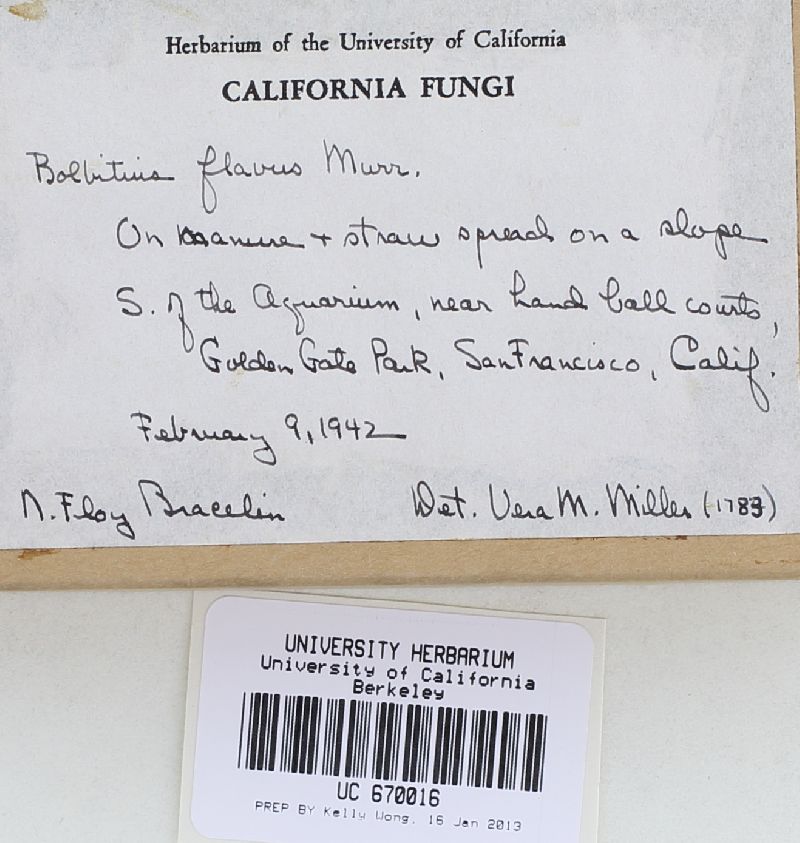 Herbarium of the University of California
CALIFORNIA FUNGI
Bolbitius flavus Murr.
On manure + straw spread on a slope
S. of the Aquarium, near hand ball courts,
Golden Gate Park, San Francisco, Calif.
February 9, 1942
N. Floy Bracelin Det. Vera M. Miller (1783)
UNIVERSITY HERBARIUM
University of California
Berkeley
UC 670016
PREP BY Kelly Wong, 16 Jan 2013